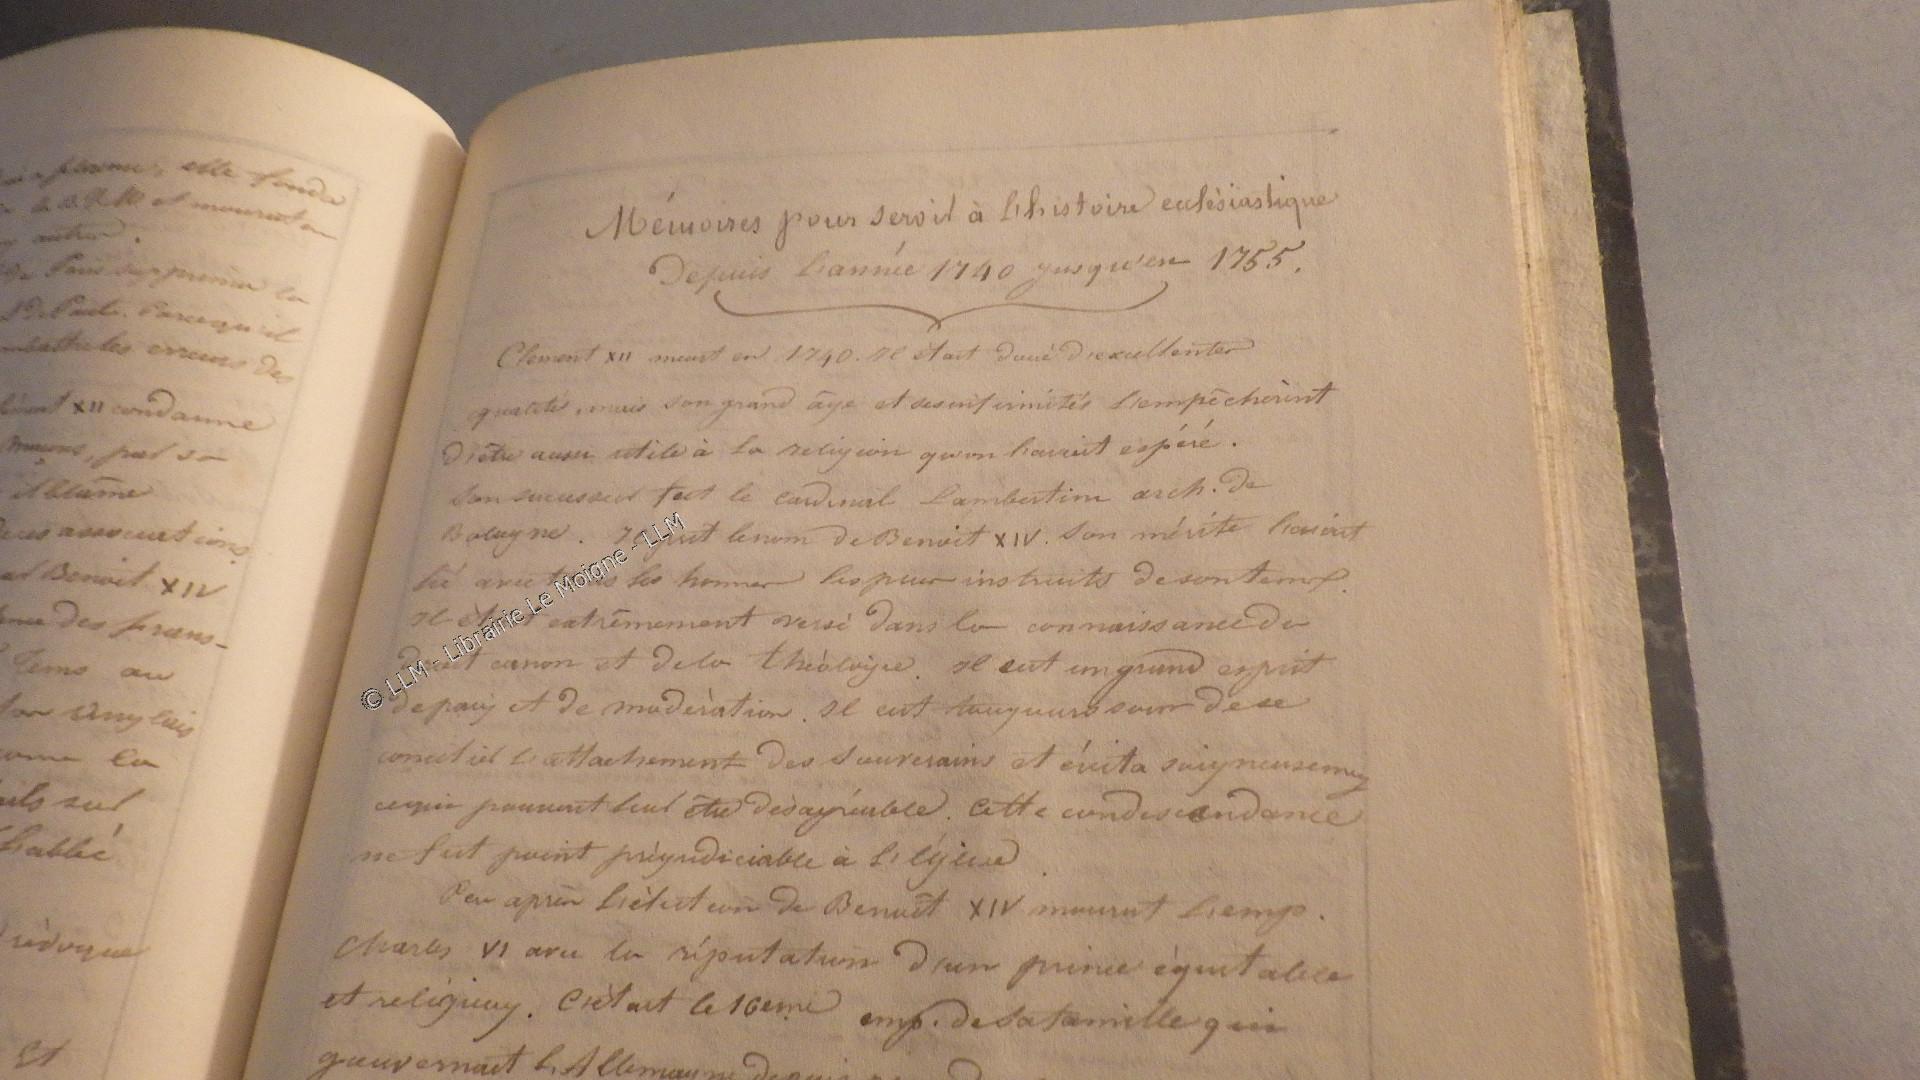 elle fonda
et mourut
autre.
Paris supprima la
Parcequ'il
les erreurs des
XII condanne
par sa
blâme
associations
Benoit XIV
des frans-
Tems au
Anglais
la
sul
établie
révoque
Et
Mémoires pour servir à l'histoire ecclésiastique
Depuis l'année 1740 jusqu'en 1755.
Clement XII meurt en 1740. Il était doué d'excellentes
qualités, mais son grand âge et ses infirmités l'empêchèrent
d'être aussi utile à la religion qu'on l'avait espéré.
Son successeur fut le cardinal Lambertini arch. de
Bologne. Il prit le nom de Benoit XIV. Son mérite l'avait
lié avec tous les hommes les plus instruits de son tems.
Il était extrêmement versé dans la connaissance du
droit canon et de la théologie. Il eut un grand esprit
de paix et de modèration. Il eut toujours soin de se
concilier l'attachement des souverains et évita soigneusement
ce qui pouvait leur être désagréable. Cette condescendance
ne fut point préjudiciable à l'église.
Peu après l'élection de Benoit XIV mourut l'emp.
Charles VI avec la réputation d'un prince équitable
et religieux. C'était le 16eme emp. de sa famille qui
gouvernait l'Allemagne depuis
© LLM - Librairie Le Moigne - LLM